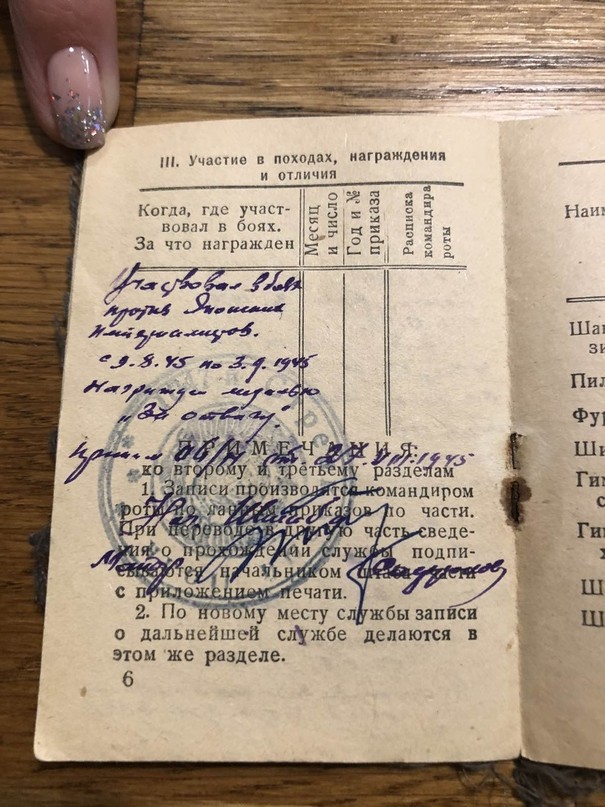 III. Участие в походах, награждения
и отличия
Когда, где участ-
вовал в боях.
За что награжден
Месяц
и число
Год и №
приказа
Расписка
командира
роты
Участвовал в боях
против Японских
Империалистов.
с 9.8.45 по 3.9.1945
Награжден медалью
„За отвагу"
Приказ 06/н от 27. 1945
ПРИМЕЧАНИЯ:
ко второму и третьему разделам
1. Записи производятся командиром
роты по данным приказов по части.
При переводе в другую часть сведе-
ния о прохождении службы подпи-
сываются начальником штаба части
с приложением печати.
Майор
2. По новому месту службы записи
о дальнейшей службе делаются в
этом же разделе.
6
Наим
Ша
зи
Пил
Фур
Ши
Гим
с
Гим
х
Ш
Ш